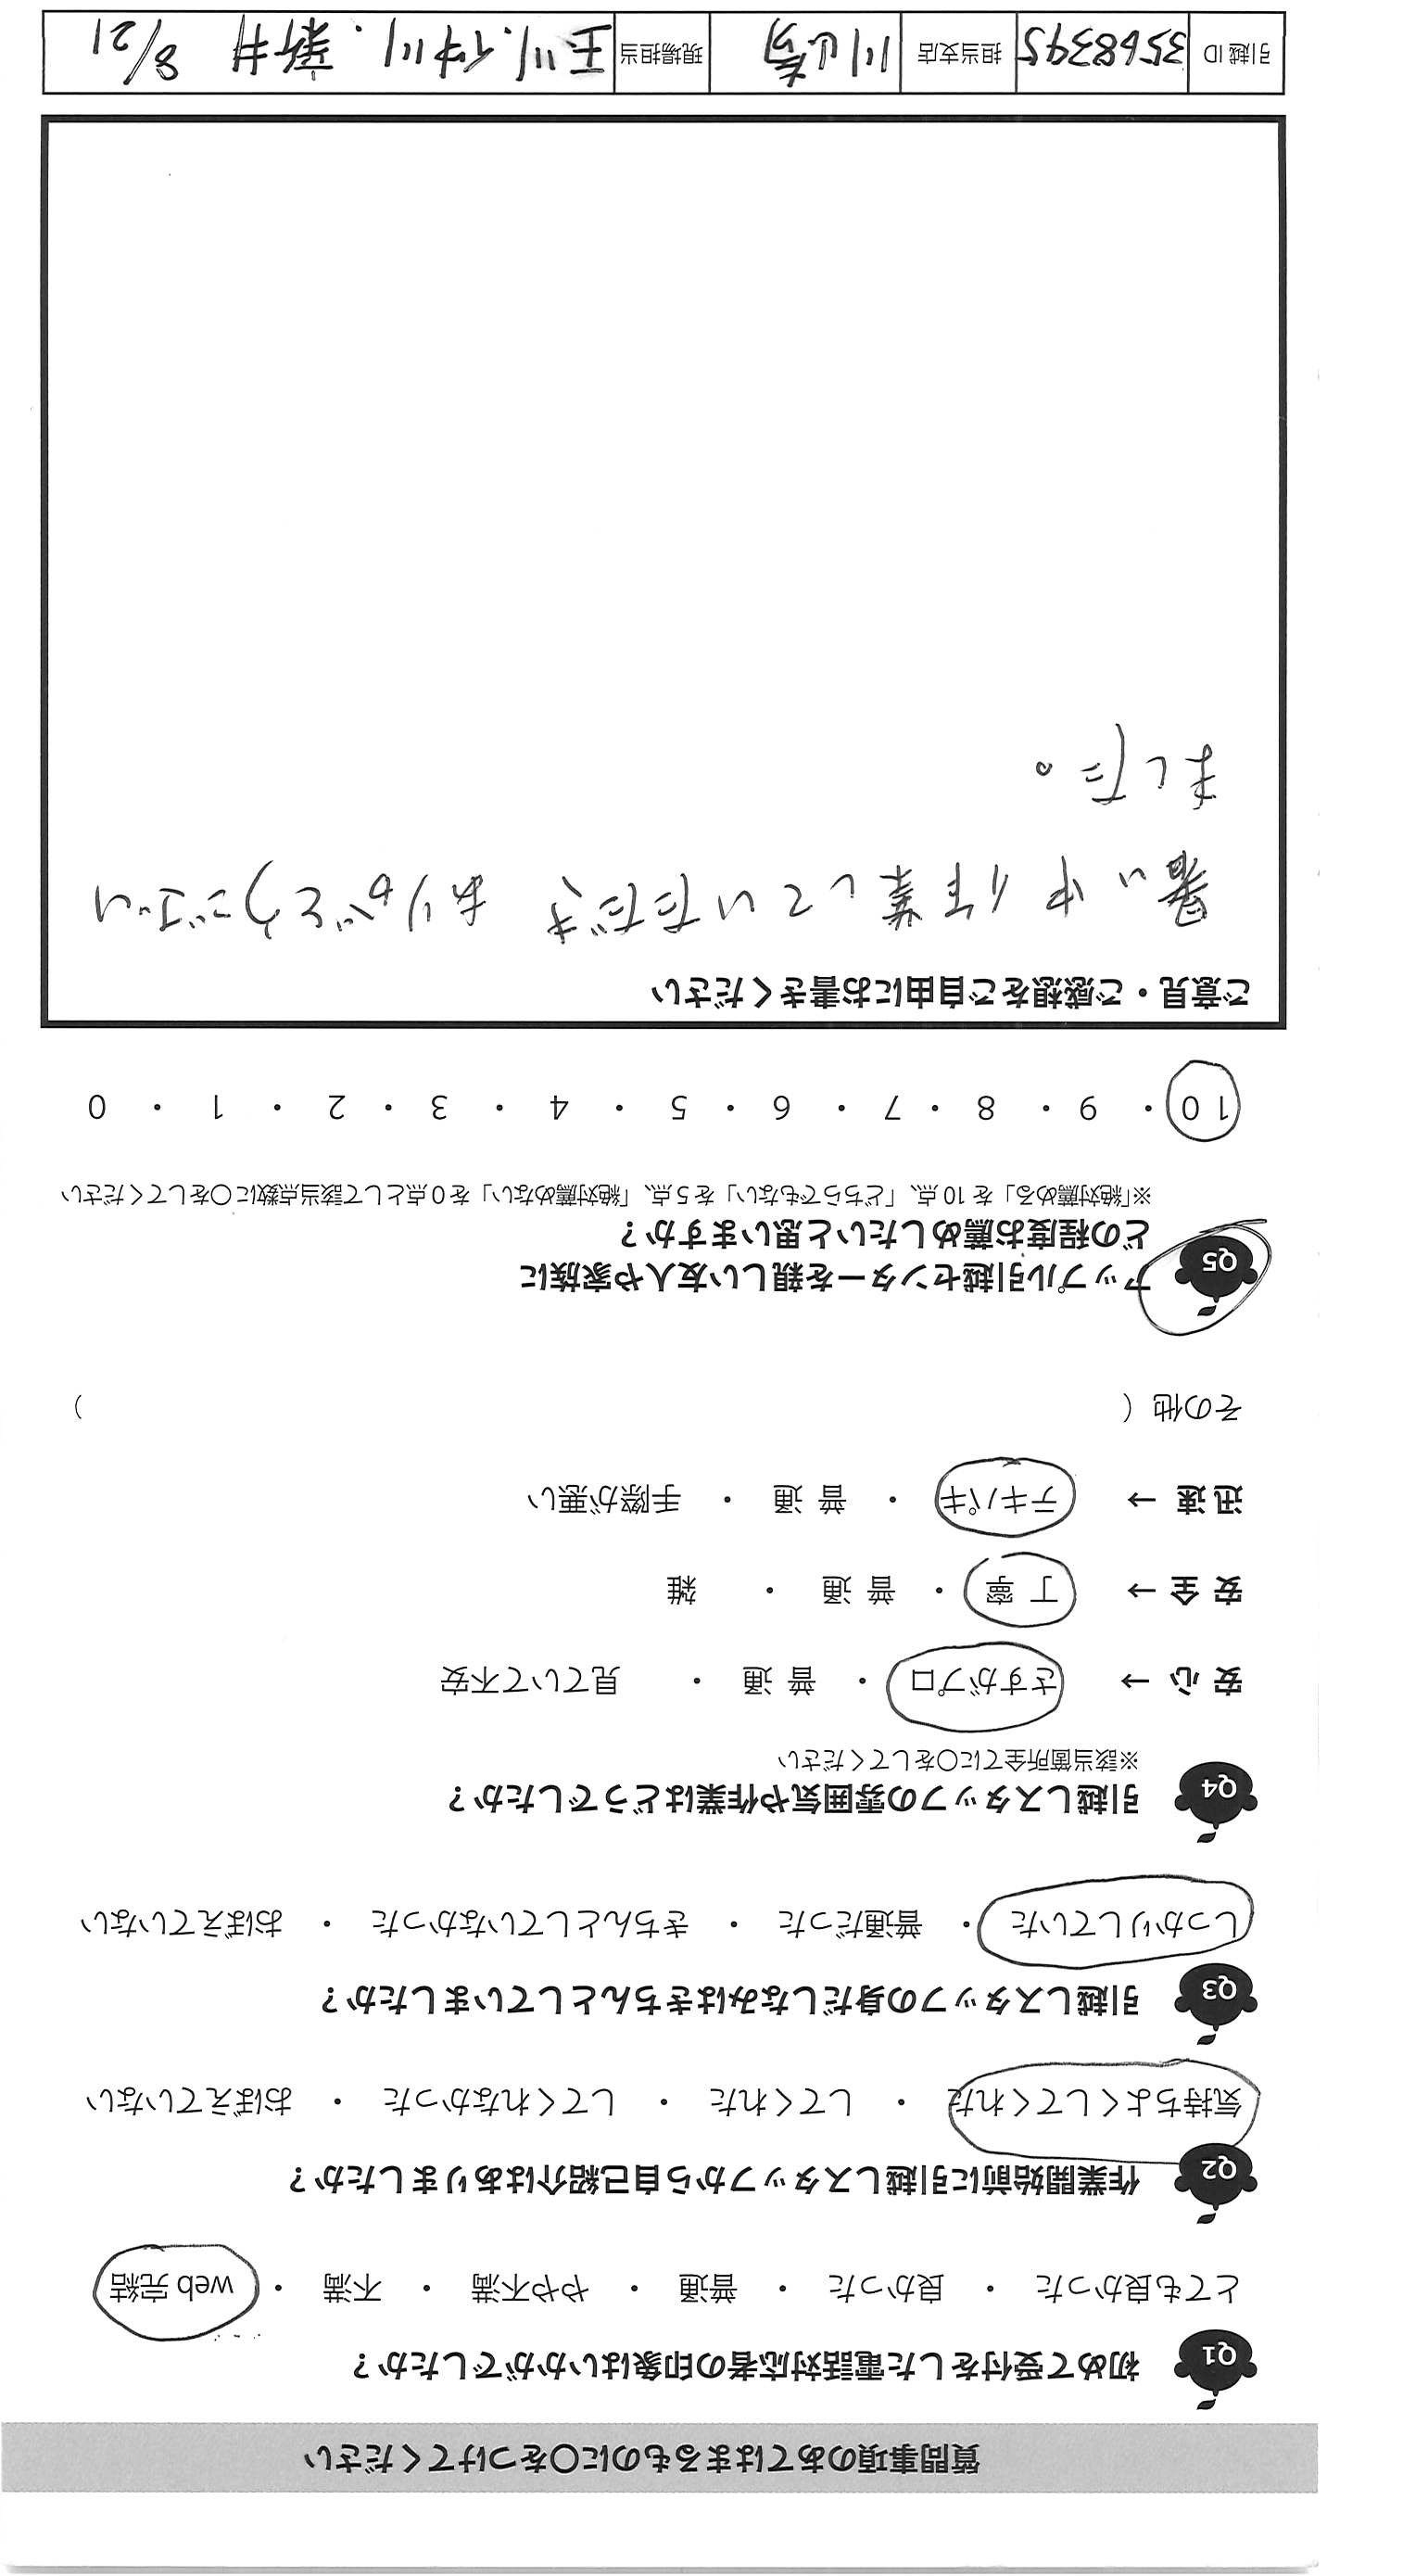 質問事項のあてはまるものに〇をつけてください
Q1 初めて受付をした電話対応者の印象はいかがでしたか？
とても良かった ・ 良かった ・ 普通 ・ やや不満 ・ 不満 ・ web 完結
Q2 作業開始前に引越しスタッフから自己紹介はありましたか？
気持ちよくしてくれた ・ してくれた ・ してくれなかった ・ おぼえていない
Q3 引越しスタッフの身だしなみはきちんとしていましたか？
しっかりしていた ・ 普通だった ・ きちんとしていなかった ・ おぼえていない
Q4 引越しスタッフの雰囲気や作業はどうでしたか？
※該当箇所全てに〇をしてください
安 心 → さすがプロ ・ 普 通 ・ 見ていて不安
安 全 → 丁 寧 ・ 普 通 ・ 雑
迅 速 → テキパキ ・ 普 通 ・ 手際が悪い
その他（ ）
Q5 アップル引越センターを親しい友人や家族に
どの程度お薦めしたいと思いますか？
※「絶対薦める」を 10 点、「どちらでもない」を 5 点、「絶対薦めない」を 0 点として該当点数に〇をしてください
10 ・ 9 ・ 8 ・ 7 ・ 6 ・ 5 ・ 4 ・ 3 ・ 2 ・ 1 ・ 0
ご意見・ご感想をご自由にお書きください
暑い中作業していただき ありがとうござい
ました。
引越 ID 3568395 担当支店 川崎 現場担当 玉川. 仲川. 新井 8/21